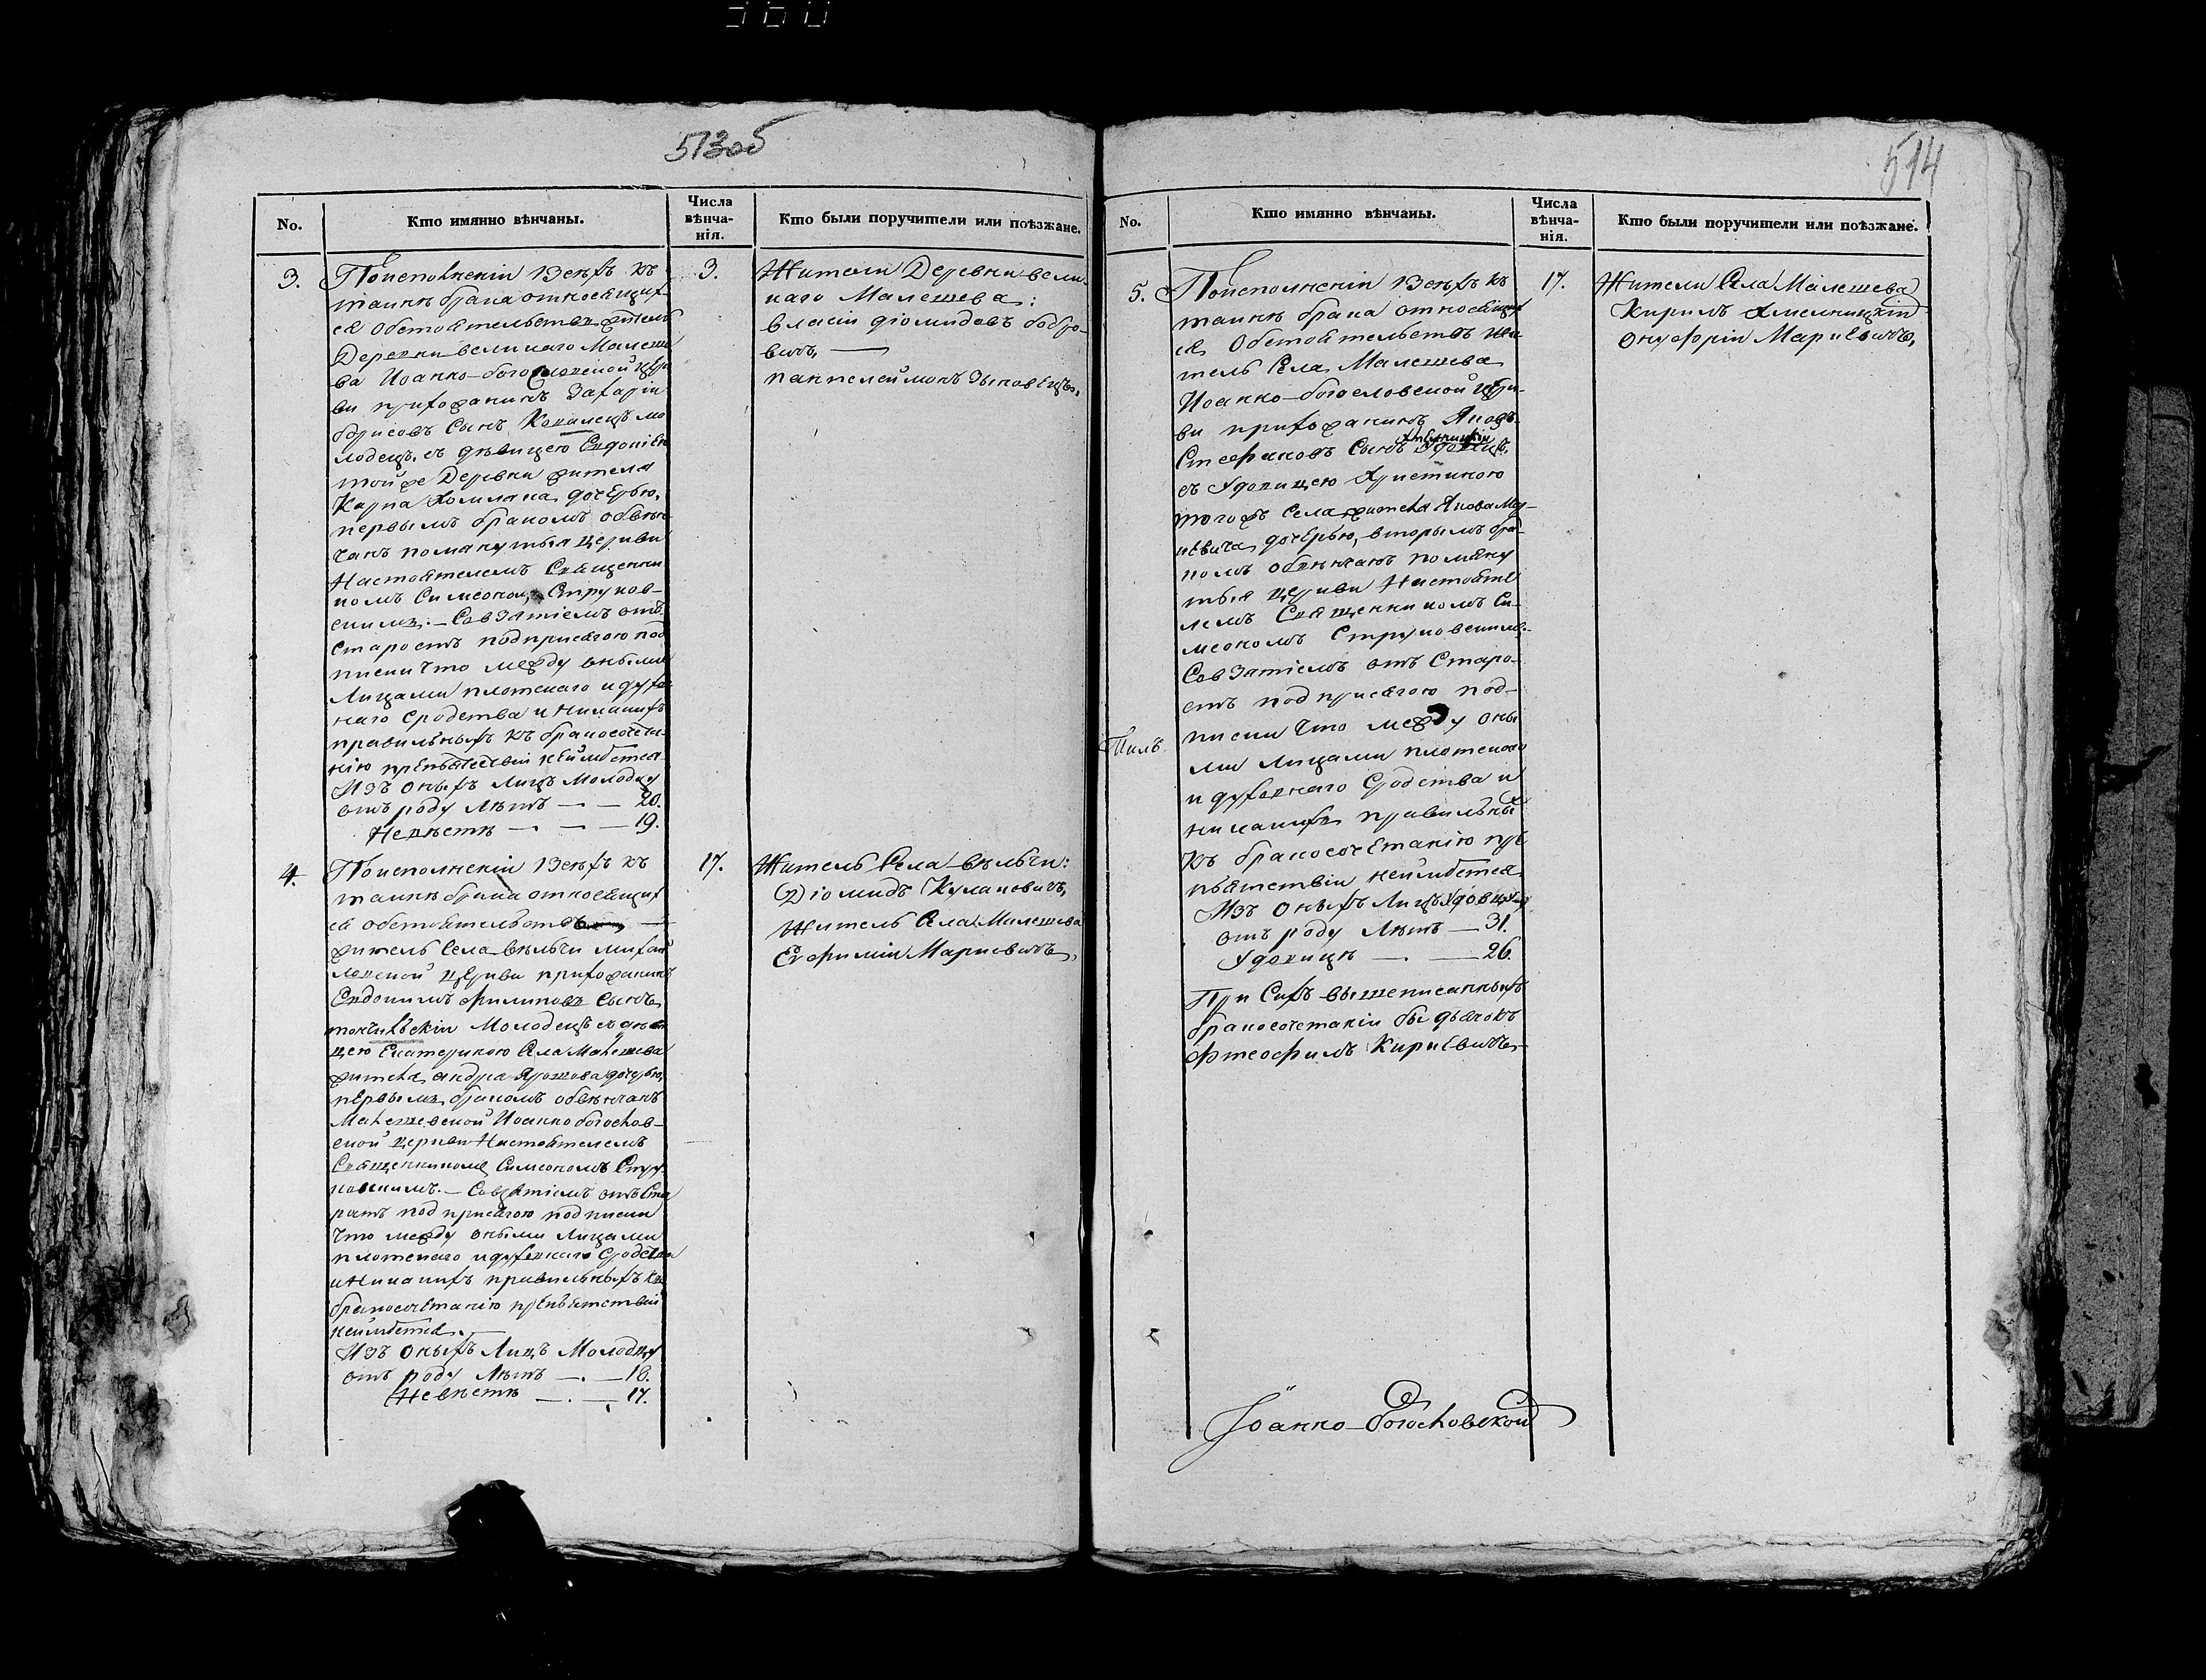 513об
No.
Кто имянно вѣнчаны.
Числа
вѣнча-
нія.
Кто были поручители или поѣзжане.
3.
Поисполненіи всѣхъ къ
таинѣ брака относящих
ся обстоятельствъ житель
Деревни великаго Малеше
ва Иоанно-богословской церк
ви прихожанинъ Захарій
борисовъ Сынъ Ковалецъ мо
лодецъ, съ дѣвицею Евдокіею
той же Деревни жителя
Карпа Хомлака дочерью,
первымъ бракомъ обвѣн
чанъ помянутыя церкви
Настоятелемъ Священни
комъ Симеономъ Струков-
скимъ. — Совзятіемъ отъ
Старостъ подприсягою под
писки что между оными
Лицами плотскаго и духо
внаго Сродства и никакихъ
правильныхъ къ бракосочета-
нію препятствій неимѣется
Изъ оныхъ Лицъ Молодцу
отъ роду Лѣтъ — — 20.
Невѣстѣ — — 19.
3.
Жители Деревни вели-
каго Малешева:
власій діомидовъ бобро-
вичъ, —
пантелеймонъ Зыковецъ,
4.
Поисполненіи всѣхъ къ
таинѣ брака относящих
ся обстоятельствъ
житель Села вѣльчи михай
ловской церкви прихожанинъ
Евдокимъ филиповъ Сынъ
Молодецъ съ дѣви
цею Екатериною Села Малешева
жителя андрея Ярошова дочерью,
первымъ бракомъ обвѣнчанъ
Малешевской Иоанно богослов-
ской церкви Настоятелемъ
Священникомъ Симеономъ Стру
ковскимъ. — Совзятіемъ отъ Ста
ростъ подприсягою подписки
что между оными Лицами
плотскаго и духовнаго Сродства
и Никакихъ правильныхъ къ
бракосочетанію препятствій
неимѣется.
Изъ оныхъ Лицъ Молодцу
отъ роду Лѣтъ — . — 18.
Невѣстѣ — . — 17.
17.
Житель Села вѣльчи:
Діомидъ Кулаковичъ,
Житель Села Малешева
Евфимій Маркевичъ,
514
No.
Кто имянно вѣнчаны.
Числа
вѣнча-
нія.
Кто были поручители или поѣзжане.
5.
Поисполненіи всѣхъ къ
таинѣ брака относящих
ся Обстоятельствъ жи
тель Села Малешева
Иоанно-богословской церк-
ви прихожанинъ Яковъ
Хмелницкій
Стефановъ Сынъ Удовецъ,
съ Удовицею Христиною
тогожъ Села жителя Якова Мар-
кевича дочерью, вторымъ бра-
комъ обвѣнчанъ помяну
тыя церкви Настояте
лемъ Священникомъ Си-
меономъ Струковскимъ.
Совзятіемъ отъ Старо-
стъ подприсягою под-
писки что между оны
ми Лицами плотскаго
и духовнаго Сродства и
никакихъ правильных
къ бракосочетанію пре
пятствіи неимѣется
Изъ оныхъ Лицъ Удовцу
отъ роду Лѣтъ — 31.
Удовицѣ — . — 26.
При Сихъ вышеписанныхъ
бракосочетаніи бы дьячокъ
Фтеофилъ Киркевичъ
17.
Жители Села Малешева
Кирилъ Хмелницкій
Онуфрій Маркевичъ,
Іоанно-богословской